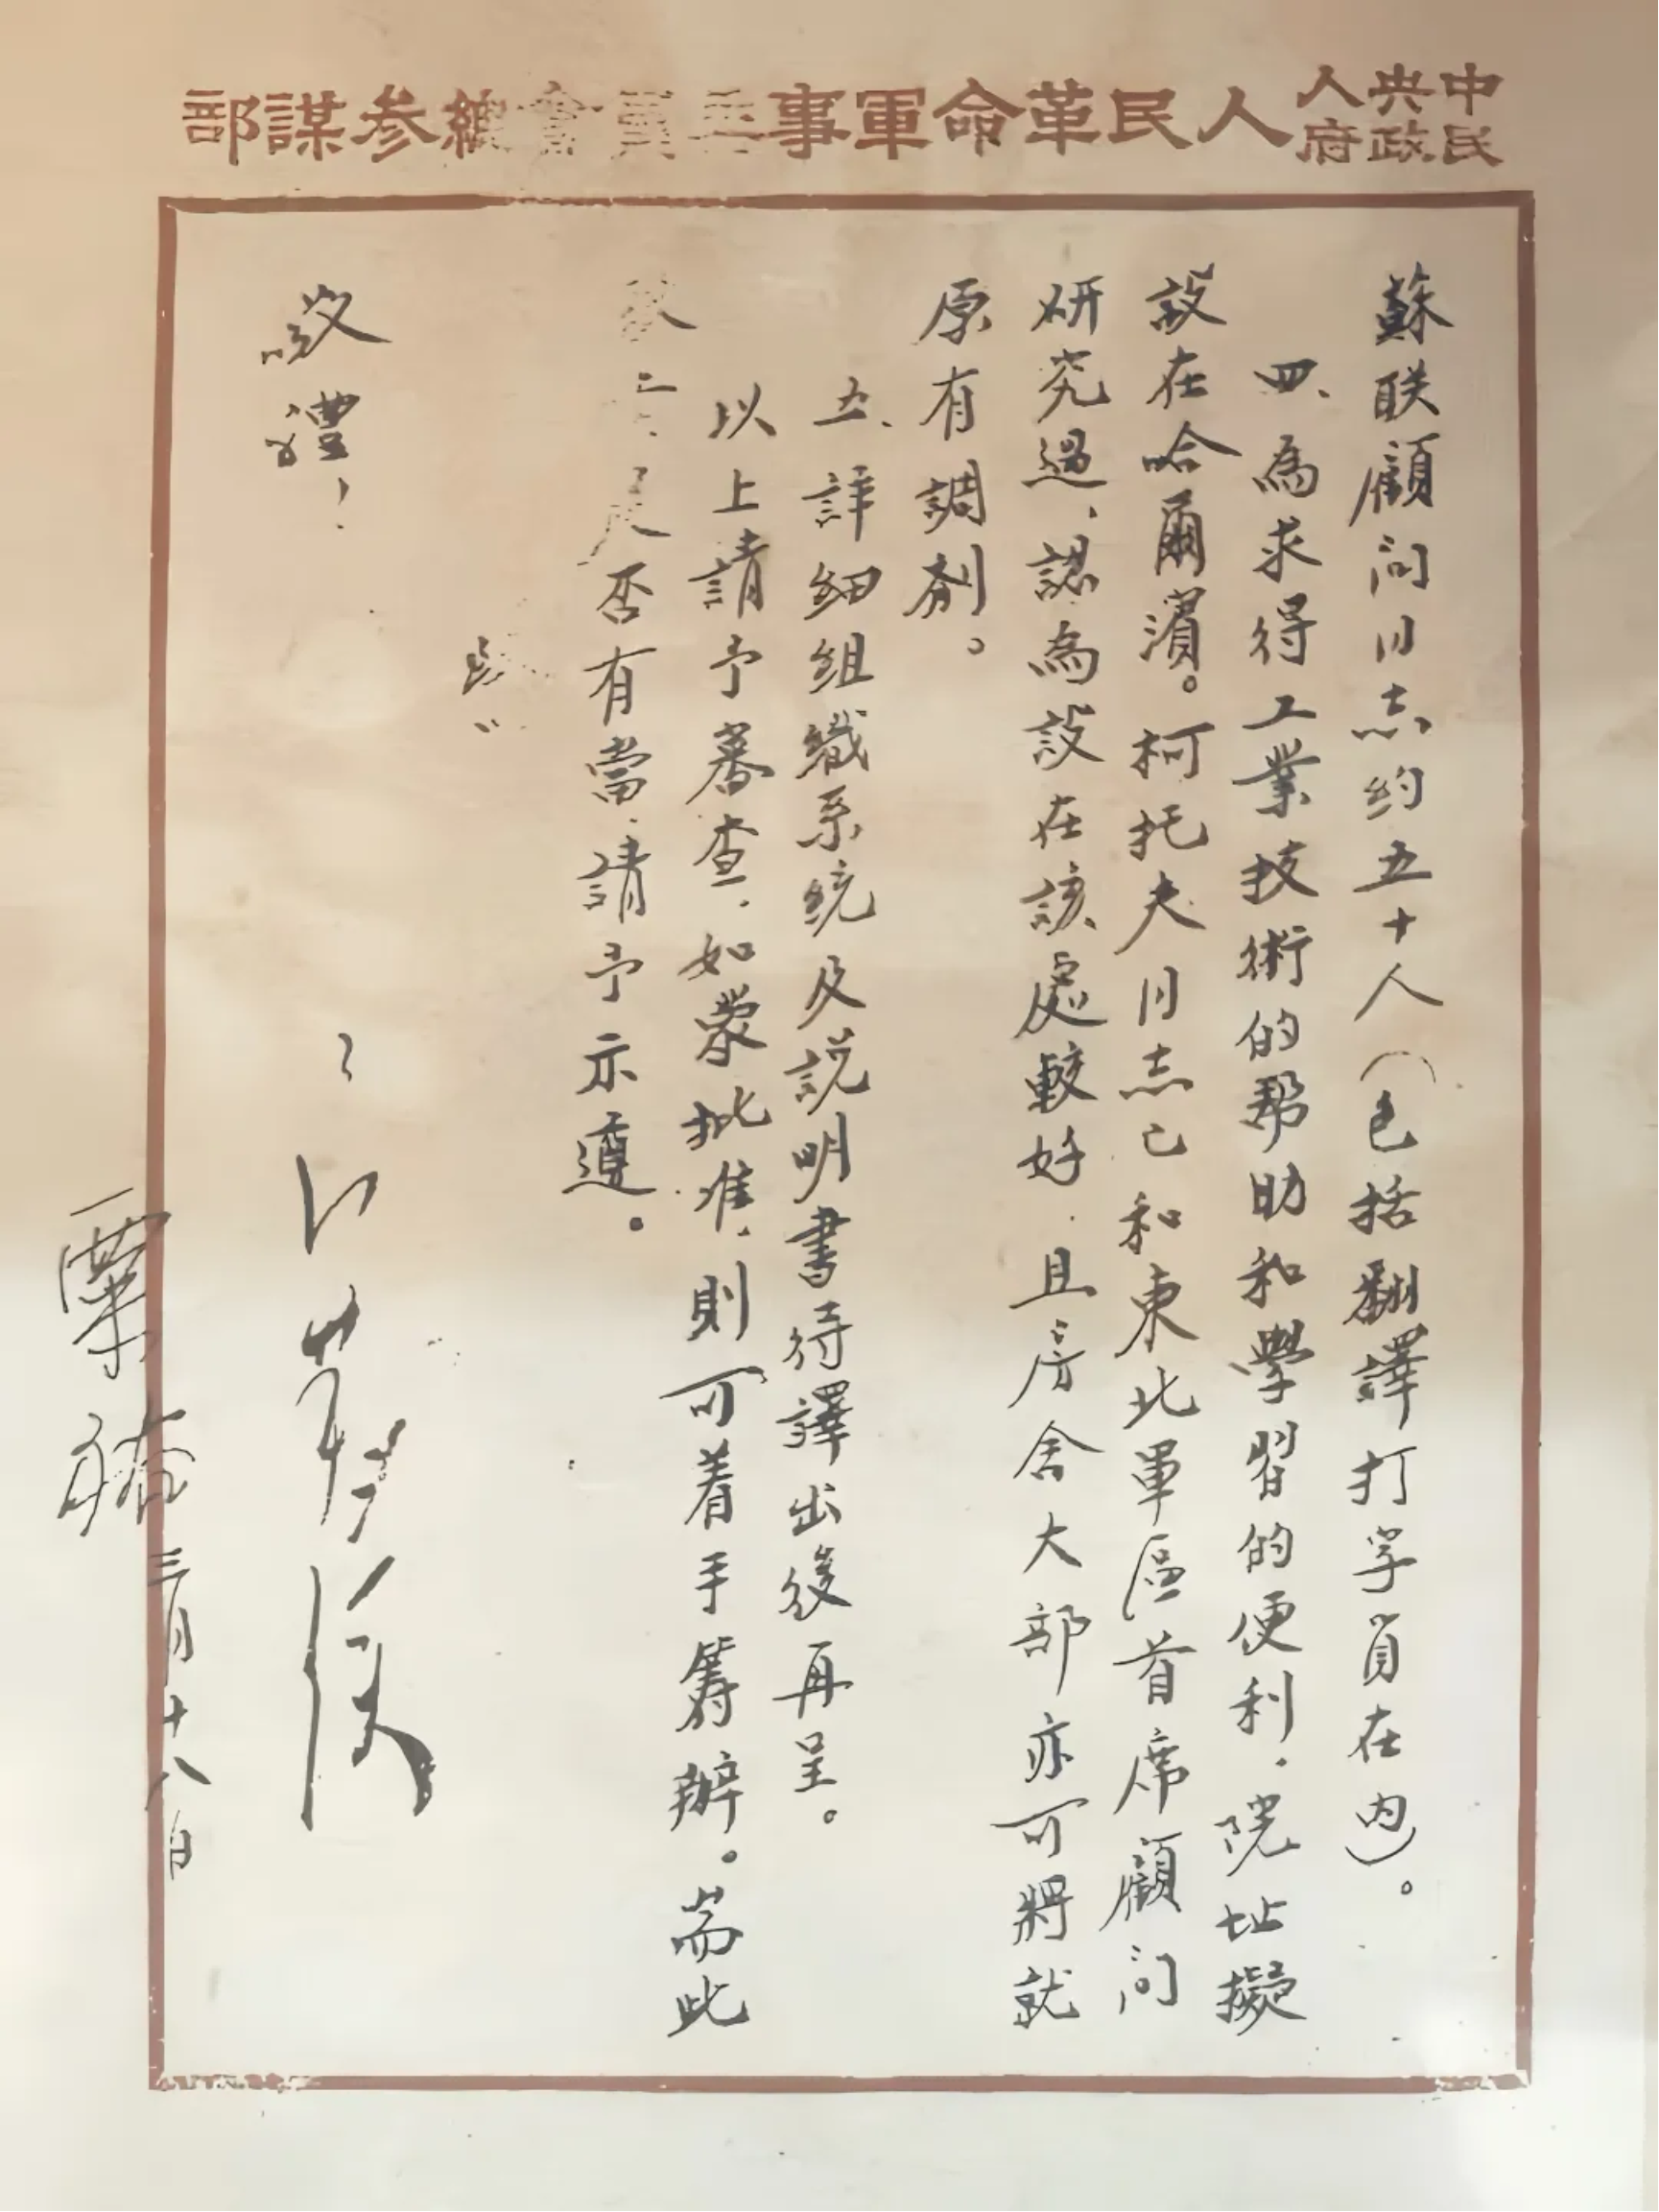 中央人民政府人民革命軍事委員會總參謀部
蘇联顧问同志約五十人（包括翻譯打字員在內）。
四、為求得工業技術的帮助和學習的便利，院址擬
設在哈爾濱。柯托夫同志已和東北軍區首席顧问
研究過，認為設在該處較好，且房舍大部亦可將就
原有調劑。
五、詳細組織系統及説明書待譯出後再呈。
以上請予審查，如蒙批准，則可着手籌辦。耑此
是否有當，請予示遵。
致
敬禮！
粟裕
三月十八日